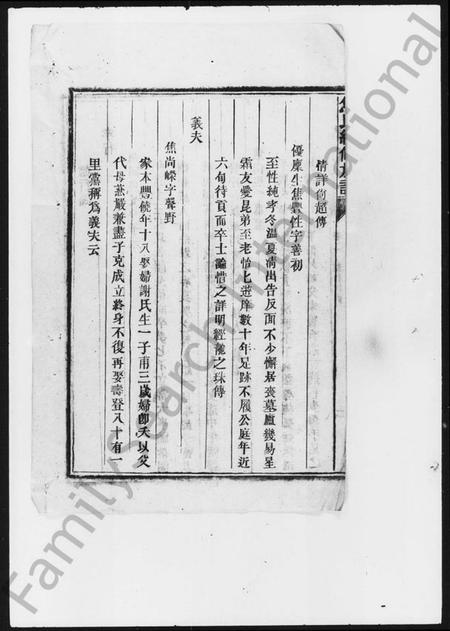 情詳曾超傳
優廩生焦性字善初
至性純孝冬溫夏凊出告反面不少懈居喪墓廬幾易星
霜友愛昆弟至老怡怡遊庠數十年足跡不履公庭年近
六旬待貢而卒士論惜之詳明經龍之珠傳
義夫
焦尚嶸字磬野
家本豐饒年十八娶婦謝氏生一子甫三歲婦卽夭以父
代母燕嚴兼盡子克成立終身不復再娶壽登八十有一
里黨稱為義夫云
FamilySearch International